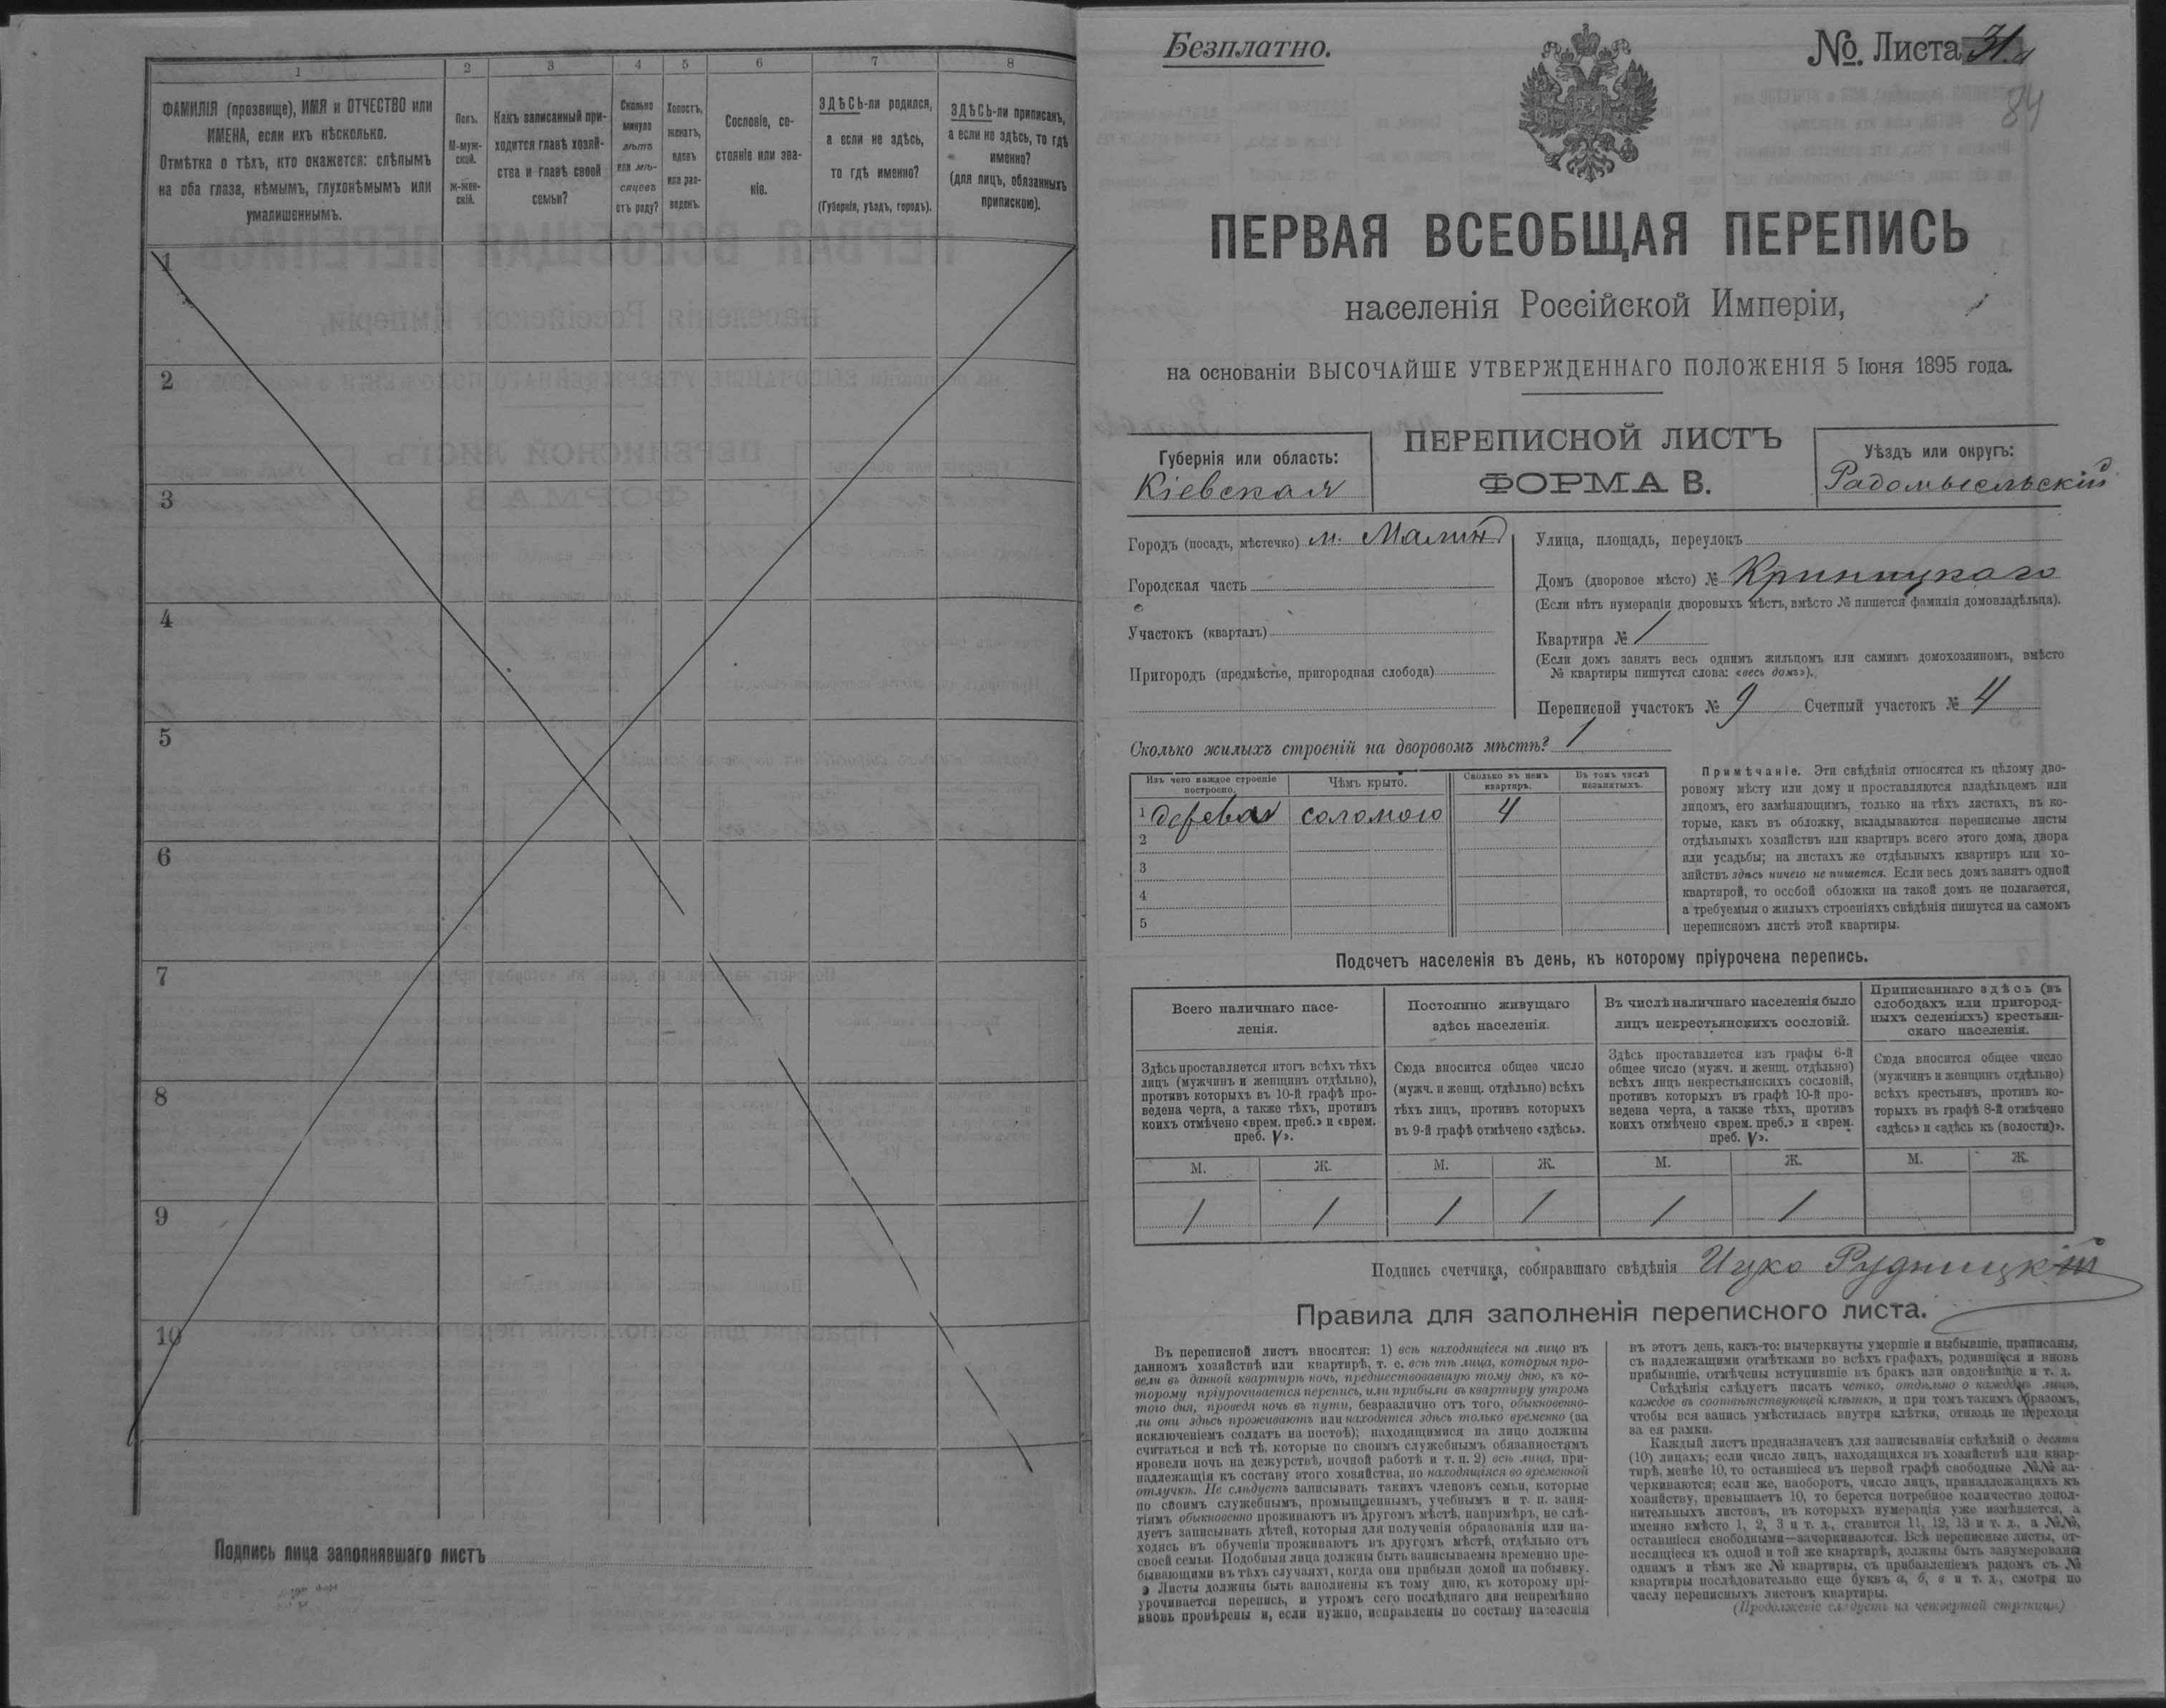 1
2
3
4
5
6
7
8
ФАМИЛІЯ (прозвище), ИМЯ и ОТЧЕСТВО или
ИМЕНА, если ихъ нѣсколько.
Отмѣтка о тѣхъ, кто окажется: слѣпымъ
на оба глаза, нѣмымъ, глухонѣмымъ или
умалишеннымъ.
Полъ.
М-муж-
ской.
Ж-жен-
скій.
Какъ записанный при-
ходится главѣ хозяй-
ства и главѣ своей
семьи?
Сколько
минуло
лѣтъ
или мѣ-
сяцевъ
отъ роду?
Холостъ,
женатъ,
вдовъ
или раз-
веденъ.
Сословіе, со-
стояніе или зва-
ніе.
ЗДѢСЬ-ли родился,
а если не здѣсь,
то гдѣ именно?
(Губернія, уѣздъ, городъ).
ЗДѢСЬ-ли приписанъ,
а если не здѣсь, то гдѣ
именно?
(для лицъ, обязанныхъ
припискою).
1
2
3
4
5
6
7
8
9
10
Подпись лица заполнявшаго листъ
Безплатно.
№. Листа 31.а
84
ПЕРВАЯ ВСЕОБЩАЯ ПЕРЕПИСЬ
населенія Россійской Имперіи,
на основаніи ВЫСОЧАЙШЕ УТВЕРЖДЕННАГО ПОЛОЖЕНІЯ 5 Іюня 1895 года.
ПЕРЕПИСНОЙ ЛИСТЪ
ФОРМА В.
Губернія или область:
Кіевская
Уѣздъ или округъ:
Радомысльскій
Городъ (посадъ, мѣстечко) м. Малинъ
Городская часть
Участокъ (кварталъ)
Пригородъ (предмѣстье, пригородная слобода)
Улица, площадь, переулокъ
Домъ (дворовое мѣсто) № Криницкаго
(Если нѣтъ нумераціи дворовыхъ мѣстъ, вмѣсто № пишется фамилія домовладѣльца).
Квартира № 1
(Если домъ занятъ весь однимъ жильцомъ или самимъ домохозяиномъ, вмѣсто
№ квартиры пишутся слова: «весь домъ»).
Переписной участокъ № 9 Счетный участокъ № 4
Сколько жилыхъ строеній на дворовомъ мѣстѣ? 1
Изъ чего каждое строеніе
построено.
Чѣмъ крыто.
Сколько въ немъ
квартиръ.
Въ томъ числѣ
незанятыхъ.
1 дерева соломою 4
2
3
4
5
Примѣчаніе. Эти свѣдѣнія относятся къ цѣлому дво-
ровому мѣсту или дому и проставляются владѣльцемъ или
лицомъ, его замѣняющимъ, только на тѣхъ листахъ, въ ко-
торые, какъ въ обложку, вкладываются переписные листы
отдѣльныхъ хозяйствъ или квартиръ всего этого дома, двора
или усадьбы; на листахъ же отдѣльныхъ квартиръ или хо-
зяйствъ здѣсь ничего не пишется. Если весь домъ занятъ одной
квартирой, то особой обложки на такой домъ не полагается,
а требуемыя о жилыхъ строеніяхъ свѣдѣнія пишутся на самомъ
переписномъ листѣ этой квартиры.
Подсчетъ населенія въ день, къ которому пріурочена перепись.
Всего наличнаго насе-
ленія.
Постоянно живущаго
здѣсь населенія.
Въ числѣ наличнаго населенія было
лицъ некрестьянскихъ сословій.
Приписаннаго здѣсь (въ
слободахъ или пригород-
ныхъ селеніяхъ) крестьян-
скаго населенія.
Здѣсь проставляется итогъ всѣхъ тѣхъ
лицъ (мужчинъ и женщинъ отдѣльно),
противъ которыхъ въ 10-й графѣ про-
ведена черта, а также тѣхъ, противъ
коихъ отмѣчено «врем. преб.» и «врем.
преб. V».
Сюда вносится общее число
(мужч. и женщ. отдѣльно) всѣхъ
тѣхъ лицъ, противъ которыхъ
въ 9-й графѣ отмѣчено «здѣсь».
Здѣсь проставляется изъ графы 6-й
общее число (мужч. и женщ. отдѣльно)
всѣхъ лицъ некрестьянскихъ сословій,
противъ которыхъ въ графѣ 10-й про-
ведена черта, а также тѣхъ, противъ
коихъ отмѣчено «врем. преб.» и «врем.
преб. V».
Сюда вносится общее число
(мужчинъ и женщинъ отдѣльно)
всѣхъ крестьянъ, противъ ко-
торыхъ въ графѣ 8-й отмѣчено
«здѣсь» и «здѣсь къ (волости)».
М. Ж. М. Ж. М. Ж. М. Ж.
1 1 1 1 1 1
Подпись счетчика, собиравшаго свѣдѣнія Ицко Рудницкій
Правила для заполненія переписного листа.
Въ переписной листъ вносятся: 1) всѣ находящіеся на лицо въ
данномъ хозяйствѣ или квартирѣ, т. е. всѣ тѣ лица, которыя про-
вели въ данной квартирѣ ночь, предшествовавшую тому дню, къ ко-
торому пріурочивается перепись, или прибыли въ квартиру утромъ
того дня, проведя ночь въ пути, безразлично отъ того, обыкновенно-
ли они здѣсь проживаютъ или находятся здѣсь только временно (за
исключеніемъ солдатъ на постоѣ); находящимися на лицо должны
считаться и всѣ тѣ, которые по своимъ служебнымъ обязанностямъ
провели ночь на дежурствѣ, ночной работѣ и т. п. 2) всѣ лица, при-
надлежащія къ составу этого хозяйства, но находящіяся во временной
отлучкѣ. Не слѣдуетъ записывать такихъ членовъ семьи, которые
по своимъ служебнымъ, промышленнымъ, учебнымъ и т. п. заня-
тіямъ обыкновенно проживаютъ въ другомъ мѣстѣ, напримѣръ, не слѣ-
дуетъ записывать дѣтей, которыя для полученія образованія или на-
ходясь въ обученіи проживаютъ въ другомъ мѣстѣ, отдѣльно отъ
своей семьи. Подобныя лица должны быть записываемы временно пре-
бывающими въ тѣхъ случаяхъ, когда они прибыли домой на побывку.
Листы должны быть заполнены къ тому дню, къ которому прі-
урочивается перепись, и утромъ сего послѣдняго дня непремѣнно
вновь провѣрены и, если нужно, исправлены по составу населенія
въ этотъ день, какъ-то: вычеркнуты умершіе и выбывшіе, приписаны,
съ надлежащими отмѣтками во всѣхъ графахъ, родившіеся и вновь
прибывшіе, отмѣчены вступившіе въ бракъ или овдовѣвшіе и т. д.
Свѣдѣнія слѣдуетъ писать четко, отдѣльно о каждомъ лицѣ,
каждое въ соотвѣтствующей клѣткѣ, и при томъ такимъ образомъ,
чтобы вся запись умѣстилась внутри клѣтки, отнюдь не переходя
за ея рамки.
Каждый листъ предназначенъ для записыванія свѣдѣній о десяти
(10) лицахъ; если число лицъ, находящихся въ хозяйствѣ или квар-
тирѣ, менѣе 10, то оставшіеся въ первой графѣ свободные №№ за-
черкиваются; если же, наоборотъ, число лицъ, принадлежащихъ къ
хозяйству, превышаетъ 10, то берется потребное количество допол-
нительныхъ листовъ, въ которыхъ нумерація уже измѣняется, а
именно вмѣсто 1, 2, 3 и т. д., ставится 11, 12, 13 и т. д., а №№,
оставшіеся свободными—зачеркиваются. Всѣ переписные листы, от-
носящіеся къ одной и той же квартирѣ, должны быть занумерованы
однимъ и тѣмъ же № квартиры, съ прибавленіемъ рядомъ съ №
квартиры послѣдовательно еще буквъ а, б, в и т. д., смотря по
числу переписныхъ листовъ квартиры.
(Продолженіе слѣдуетъ на четвертой страницѣ)